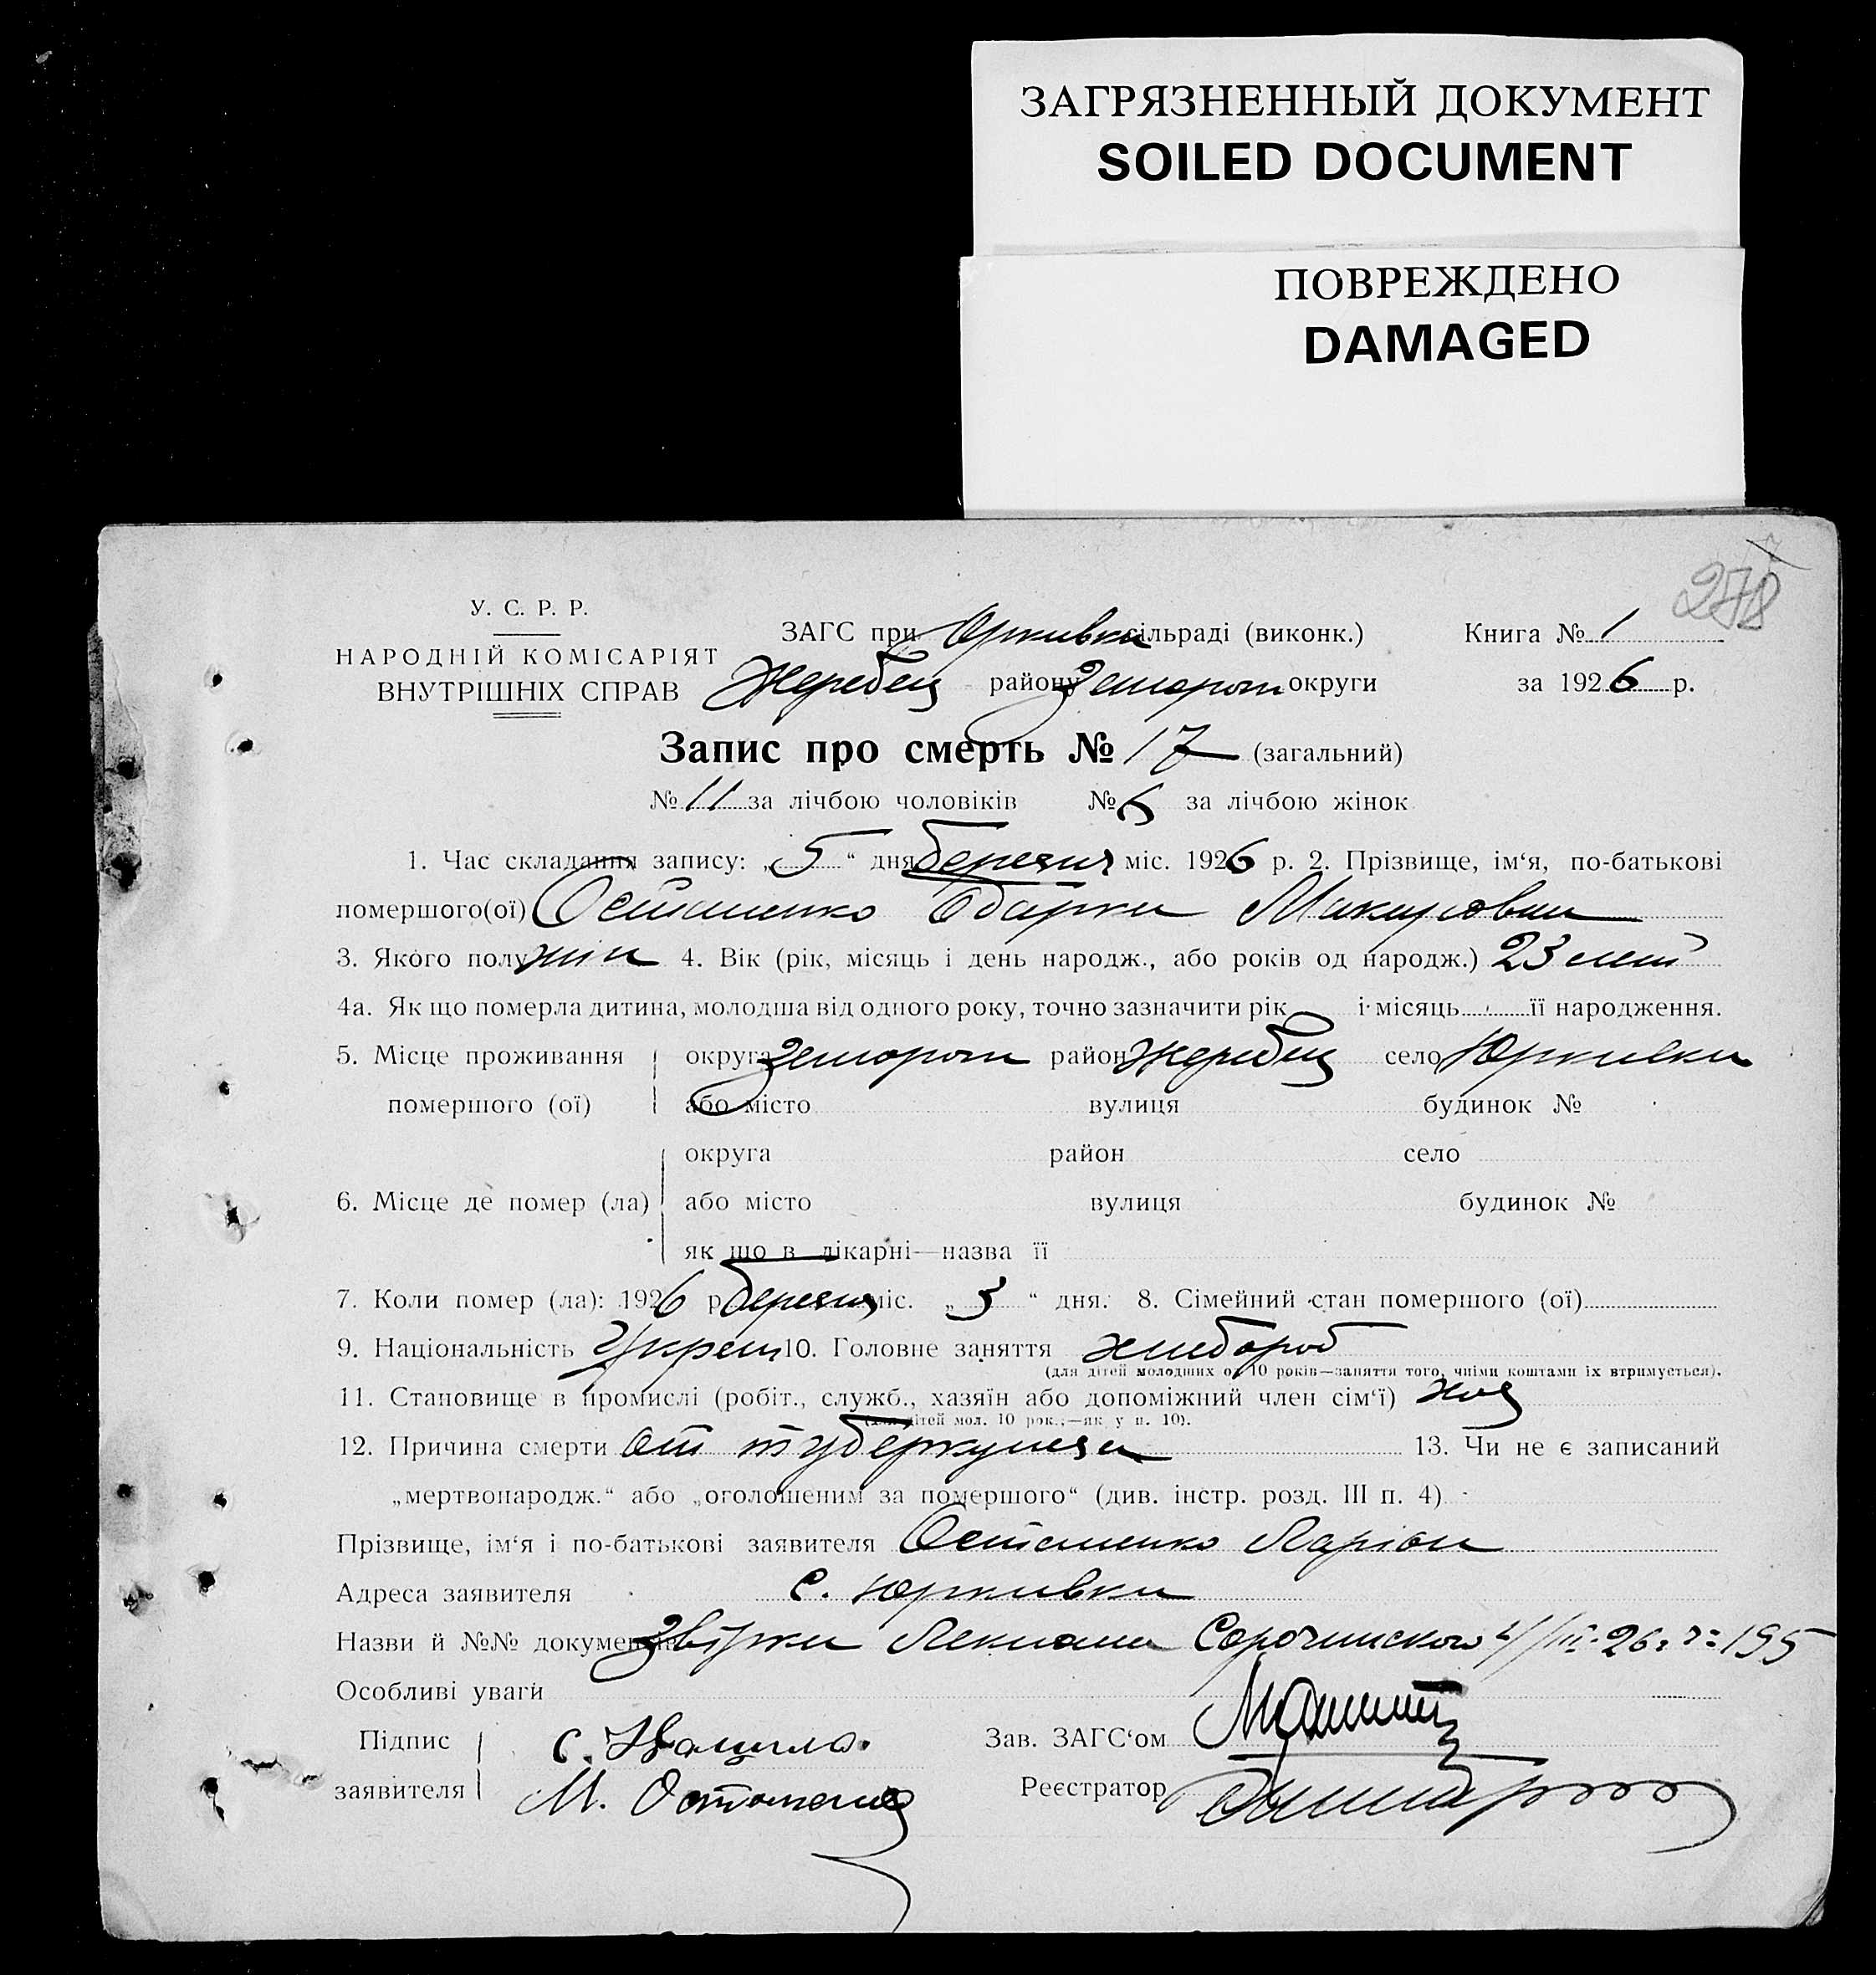 ЗАГРЯЗНЕННЫЙ ДОКУМЕНТ
SOILED DOCUMENT
ПОВРЕЖДЕНО
DAMAGED
278
У. С. Р. Р.
НАРОДНІЙ КОМІСАРІЯТ
ВНУТРІШНІХ СПРАВ
ЗАГС при Юркивка сільраді (виконк.) Книга № 1
Жеребец району Запорож округи за 1926 р.
Запис про смерть № 17 (загальний)
№ 11 за лічбою чоловіків № 6 за лічбою жінок
1. Час складання запису: „5“ дня березня міс. 1926 р. 2. Прізвище, ім‘я, по-батькові
помершого(ої) Осташенко Одарка Макаровна
3. Якого полу жін 4. Вік (рік, місяць і день народж., або років од народж.) 23 лет
4а. Як що померла дитина, молодша від одного року, точно зазначити рік і місяць її народження.
5. Місце проживання округа Запорож район Жеребец село Юркивка
помершого (ої) або місто вулиця будинок №
округа район село
6. Місце де помер (ла) або місто вулиця будинок №
як що в лікарні—назва її
7. Коли помер (ла): 1926 р березня міс. „3“ дня. 8. Сімейний стан помершого (ої)
9. Національність Украин 10. Головне заняття хлебороб
(для дітей молодших од 10 років—заняття того, чиїми коштами їх втримується).
11. Становище в промислі (робіт., служб., хазяїн або допоміжний член сім‘ї) хоз
(для дітей мол. 10 рок.;—як у п. 10).
12. Причина смерти от туберкулеза 13. Чи не є записаний
„мертвонародж.“ або „оголошеним за помершого“ (див. інстр. розд. III п. 4)
Прізвище, ім‘я і по-батькові заявителя Осташенко Ларіон
Адреса заявителя с. Юркивка
Назви й №№ документів Сорочинского 4/III-26 г. 195
Особливі уваги
Підпис Зав. ЗАГС‘ом
заявителя М. Реєстратор